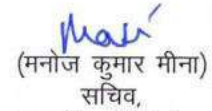 (मनोज कुमार मीना)
सचिव,